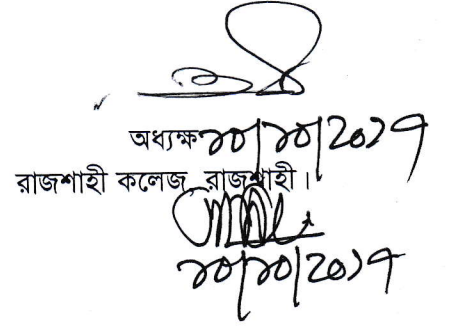 অধ্যক্ষ ১০/১০/২০১৭
রাজশাহী কলেজ, রাজশাহী।
১০/১০/২০১৭